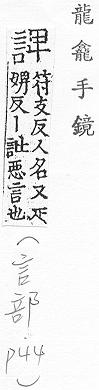 龍龕手鏡
諀符支反人名又疋
婢反丨訿惡言也
(言部 p44)